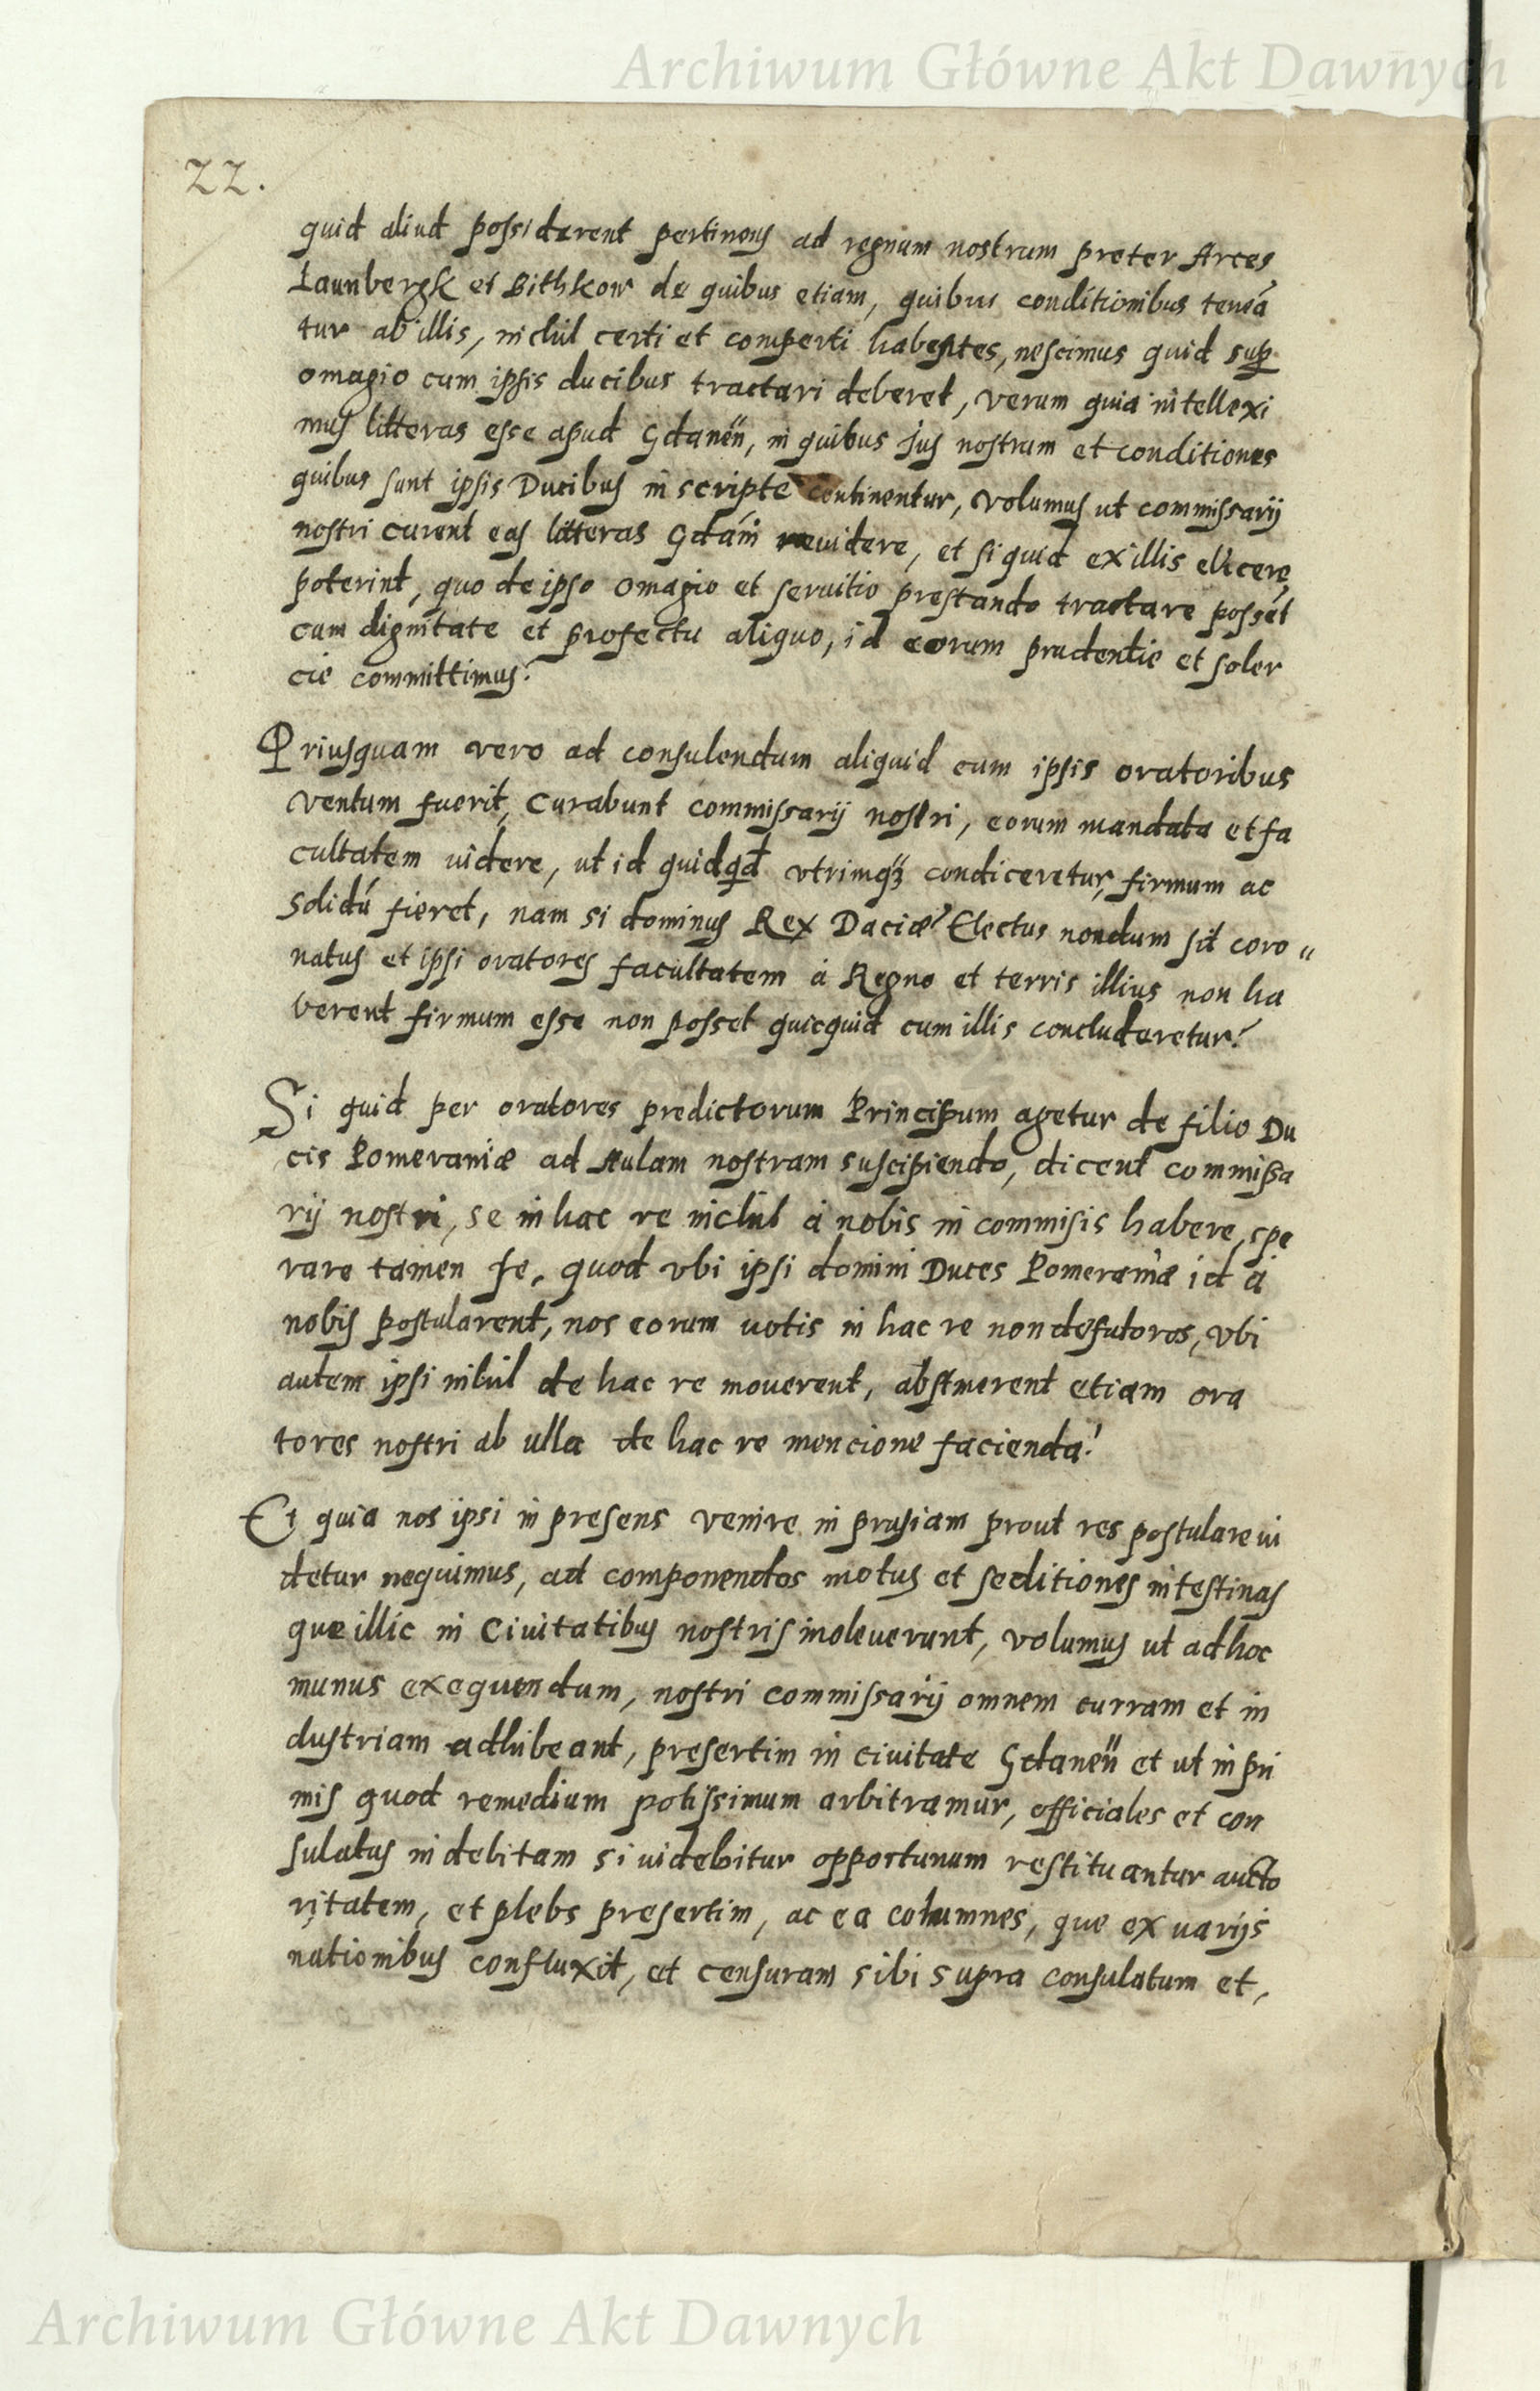 Archiwum Główne Akt Dawnych
22.
quid aliud possiderent pertinens ad regnum nostrum preter Arces
Launbergk et Bithkow de quibus etiam, quibus conditionibus teneā
tur ab illis, nichil certi et comperti habentes, nescimus quid sup
omagio cum ipsis ducibus tractari deberet, verum quia intellexi
mus litteras esse apud Gdanen̄, in quibus Jus nostrum et conditiones
quibus sunt ipsis Ducibus inscripte continentur, volumus ut commissarij
nostri curent eas litteras Gdani revidere, et si quid ex illis elicere
poterint, quo de ipso omagio et servitio prestando tractare possēt
cum dignitate et profectu aliquo, id eorum prudentie et soler
cie committimus.
Priusquam vero ad consulendum aliquid cum ipsis oratoribus
ventum fuerit, Curabunt commissarij nostri, eorum mandata et fa
cultatem videre, ut id quidqd utrimqz condiceretur, firmum ac
solidū fieret, nam si dominus Rex Daciæ Electus nondum sit coro"
natus et ipsi oratores facultatem à Regno et terris illius non ha
verent firmum esse non posset quicquid cum illis concluderetur.
Si quid per oratores predictorum Principum agetur de filio Du
cis Pomeraniæ ad Aulam nostram suscipiendo, dicent commissa
rij nostri, se in hac re nichil à nobis in commisis habere, spe
rare tamen se, quod ubi ipsi domini Duces Pomeraniæ id a
nobis postularent, nos eorum votis in hac re non defutoros, ubi
autem ipsi nihil de hac re moverent, abstinerent etiam ora
tores nostri ab ulla de hac re mencione facienda.
Et quia nos ipsi in presens venire in prusiam prout res postulare vi
detur nequimus, ad componendos motus et seditiones intestinas
que illic in Civitatibus nostris inoleverunt, volumus ut ad hoc
munus exequendum, nostri commissarij omnem curram et in
dustriam adhibeant, presertim in civitate Gdanen̄ et ut in pri
mis quod remedium potissimum arbitramur, officiales et con
sulatus in debitam si videbitur opportunum restituantur aucto
ritatem, et plebs presertim, ac ea columnes, que ex varijs
nationibus confluxit, et censuram sibi supra consulatum et,
Archiwum Główne Akt Dawnych